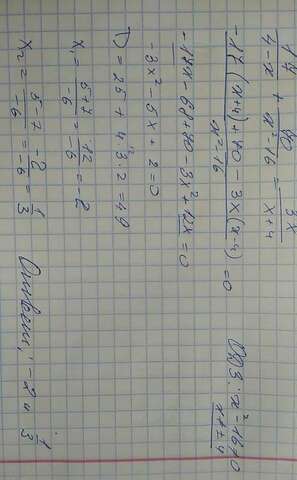 17/(4-x) + 70/(x²-16) = 3x/(x+4)
(-17(x+4)+70-3x(x-4))/(x²-16) = 0
ОДЗ: x²-16≠0
x≠±4
-17x-68+70-3x²+12x=0
-3x²-5x+2=0
D=25+4·3·2=49
x₁ = (5+7)/-6 = 12/-6 = -2
x₂ = (5-7)/-6 = -2/-6 = 1/3
Ответ: -2 и 1/3